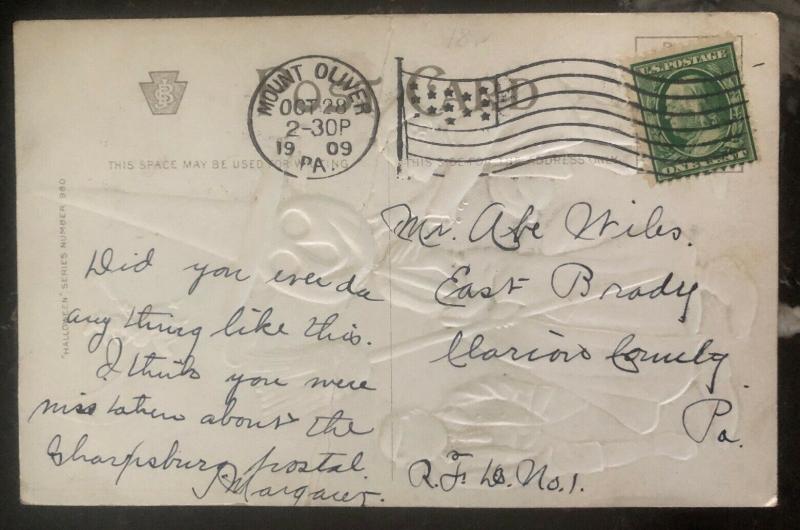 POST CARD
MOUNT OLIVER
OCT 28
2-30P
19 09
PA.
U.S. POSTAGE
ONE CENT
THIS SPACE MAY BE USED FOR WRITING
THIS SIDE FOR THE ADDRESS ONLY
"HALLOWEEN" SERIES NUMBER 980
Did you ever do
any thing like this.
I think you were
miss taken about the
Sharpsburg postal.
Margaret.
Mr. Abe Wiles.
East Brady
Clarion County
Pa.
R.F.D. No. 1.